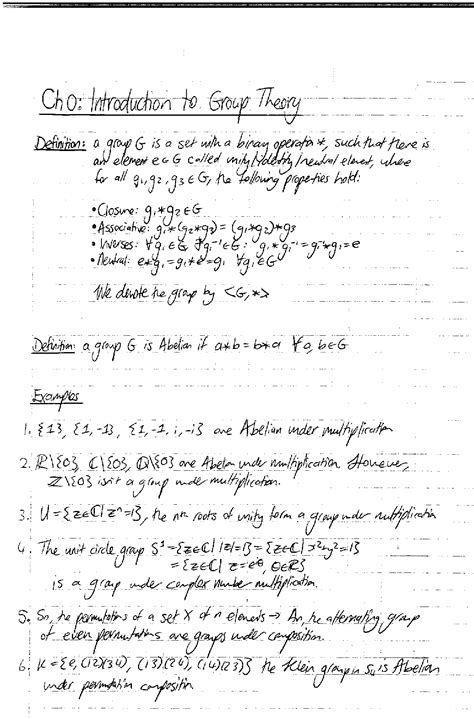 Ch0: Introduction to Group Theory
Definition: a group G is a set with a binary operation *, such that there is
an element e∈G called unity/identity/neutral element, where
for all g₁, g₂, g₃ ∈ G, the following properties hold:
• Closure: g₁*g₂∈G
• Associative: g₁*(g₂*g₃) = (g₁*g₂)*g₃
• Inverses: ∀g₁∈G ∃g₁⁻¹∈G : g₁*g₁⁻¹ = g₁⁻¹*g₁ = e
• Neutral: e*g₁ = g₁*e = g₁ ∀g₁∈G
We denote the group by <G,*>
Definition: a group G is Abelian if a*b = b*a ∀a,b∈G
Examples
1. {1}, {1,-1}, {1,-1,i,-i} are Abelian under multiplication
2. ℝ\{0}, ℂ\{0}, ℚ\{0} are Abelian under multiplication. However,
ℤ\{0} isn't a group under multiplication.
3. U = {z∈ℂ | zⁿ=1}, the nth roots of unity form a group under multiplication
4. The unit circle group S¹ = {z∈ℂ | |z|=1} = {z∈ℂ | x²+y²=1}
= {z∈ℂ | z=e^iθ, θ∈ℝ}
is a group under complex number multiplication.
5. Sn, the permutations of a set X of n elements → An, the alternating group
of even permutations are groups under composition.
6. K = {e, (12)(34), (13)(24), (14)(23)} the Klein group in S₄ is Abelian
under permutation composition